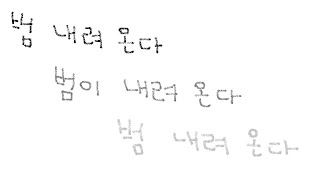 범 내려 온다
범이 내려 온다
범 내려 온다